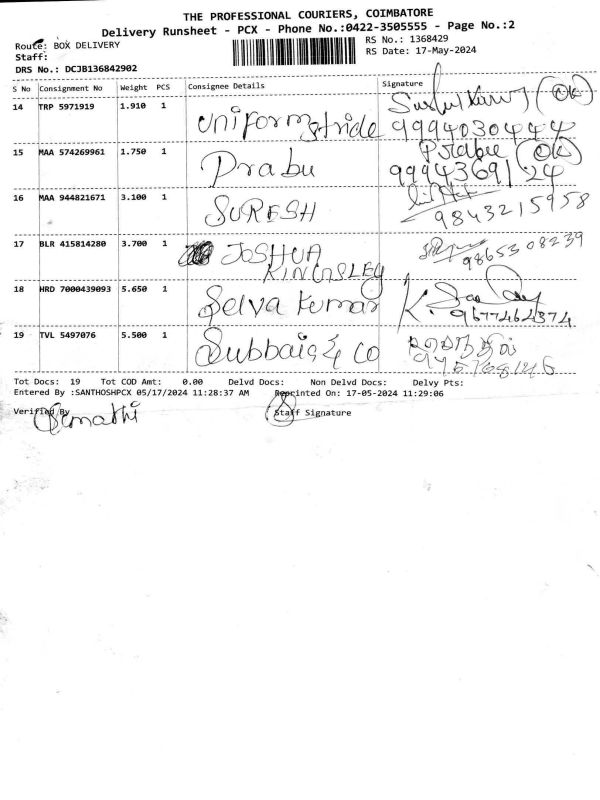 THE PROFESSIONAL COURIERS, COIMBATORE
Delivery Runsheet - PCX - Phone No.:0422-3505555 - Page No.:2
Route: BOX DELIVERY
RS No.: 1368429
Staff:
RS Date: 17-May-2024
DRS No.: DCJB136842902
S No Consignment No Weight PCS Consignee Details Signature
14 TRP 5971919 1.910 1 Uniform stride (OK)
9994030444
15 MAA 574269961 1.750 1 Prabu Prabu (OK)
9994369124
16 MAA 944821671 3.100 1 SURESH
9843215958
17 BLR 415814280 3.700 1 JOSHUA
KINGSLEY 9865308239
18 HRD 7000439093 5.650 1 Selva Kumar K.
9677464374
19 TVL 5497076 5.500 1 Subbaig & Co
Tot Docs: 19 Tot COD Amt: 0.00 Delvd Docs: Non Delvd Docs: Delvy Pts:
Entered By :SANTHOSHPCX 05/17/2024 11:28:37 AM Reprinted On: 17-05-2024 11:29:06
Verified By Staff Signature